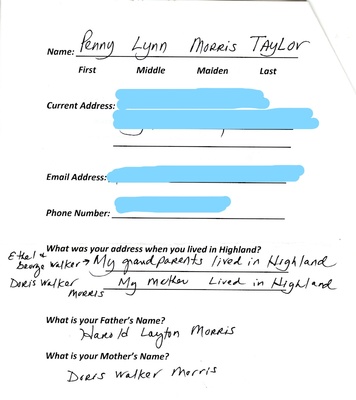 Name: Penny Lynn Morris Taylor
First Middle Maiden Last
Current Address:
Email Address:
Phone Number:
What was your address when you lived in Highland?
Ethel & George Walker → My grandparents lived in Highland
Doris Walker Morris My mother Lived in Highland
What is your Father's Name?
Harold Layton Morris
What is your Mother's Name?
Doris Walker Morris